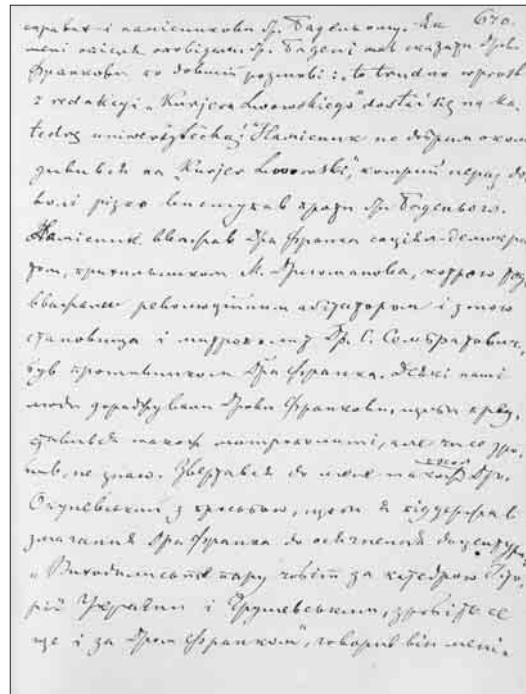 670.
справах і намісникови гр. Баденьому. Як
мені опісля оповідали гр. Бадені мав сказати Дрови
Франкови по довшій розмові: „to trudno wprost
z redakcyi „Kurjera Lwowskiego" dostać się na ka-
tedrę uniwersytecką". Намісник не добрим оком
дивився на „Kurjer Lwowski", котрий нераз до-
волі різко виступав проти гр. Баденього.
Намісник вважав Дра Франка соціял-демокра-
том, прихильником М. Драгоманова, котрого
вважали революційним агітатором і з того
становища і митрополит Др. С. Сембратович,
був противником Дра Франка. Деякі наші
люди дораджували Дрови Франкови, щоби пред-
ставився також митрополиті, але чи се зро-
бив, не знаю. Звертався до мене також Др.
Окуневський з просьбою, щоби я піддержав
змагання Дра Франка до осягнення доцентури.
„Виходили пару чобіт за катедрою Істо-
рії України і Грушевським, зробіть се
ще і за Дром Франком", говорив він мені.